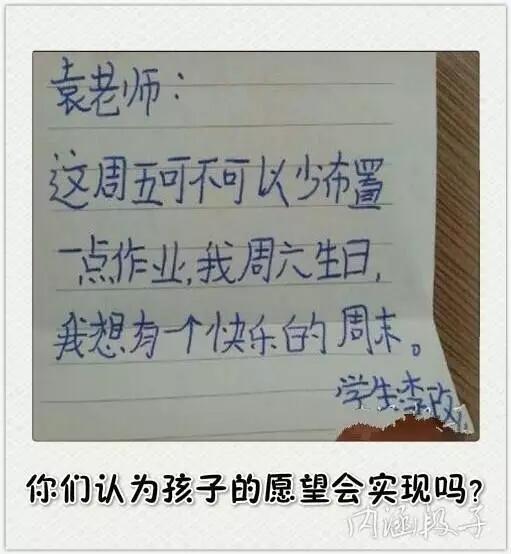 袁老师：
这周五可不可以少布置
一点作业,我周六生日,
我想有一个快乐的周末。
学生:李
你们认为孩子的愿望会实现吗?
内涵段子